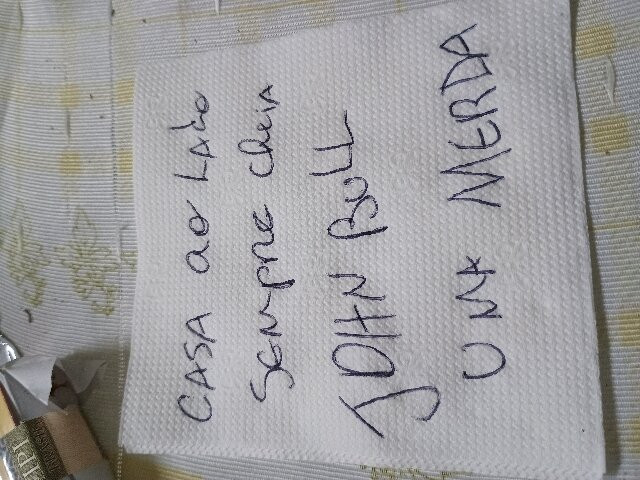 CASA ao LADO
SEMPRE CheiA
JOHN BULL
UMA MERDA